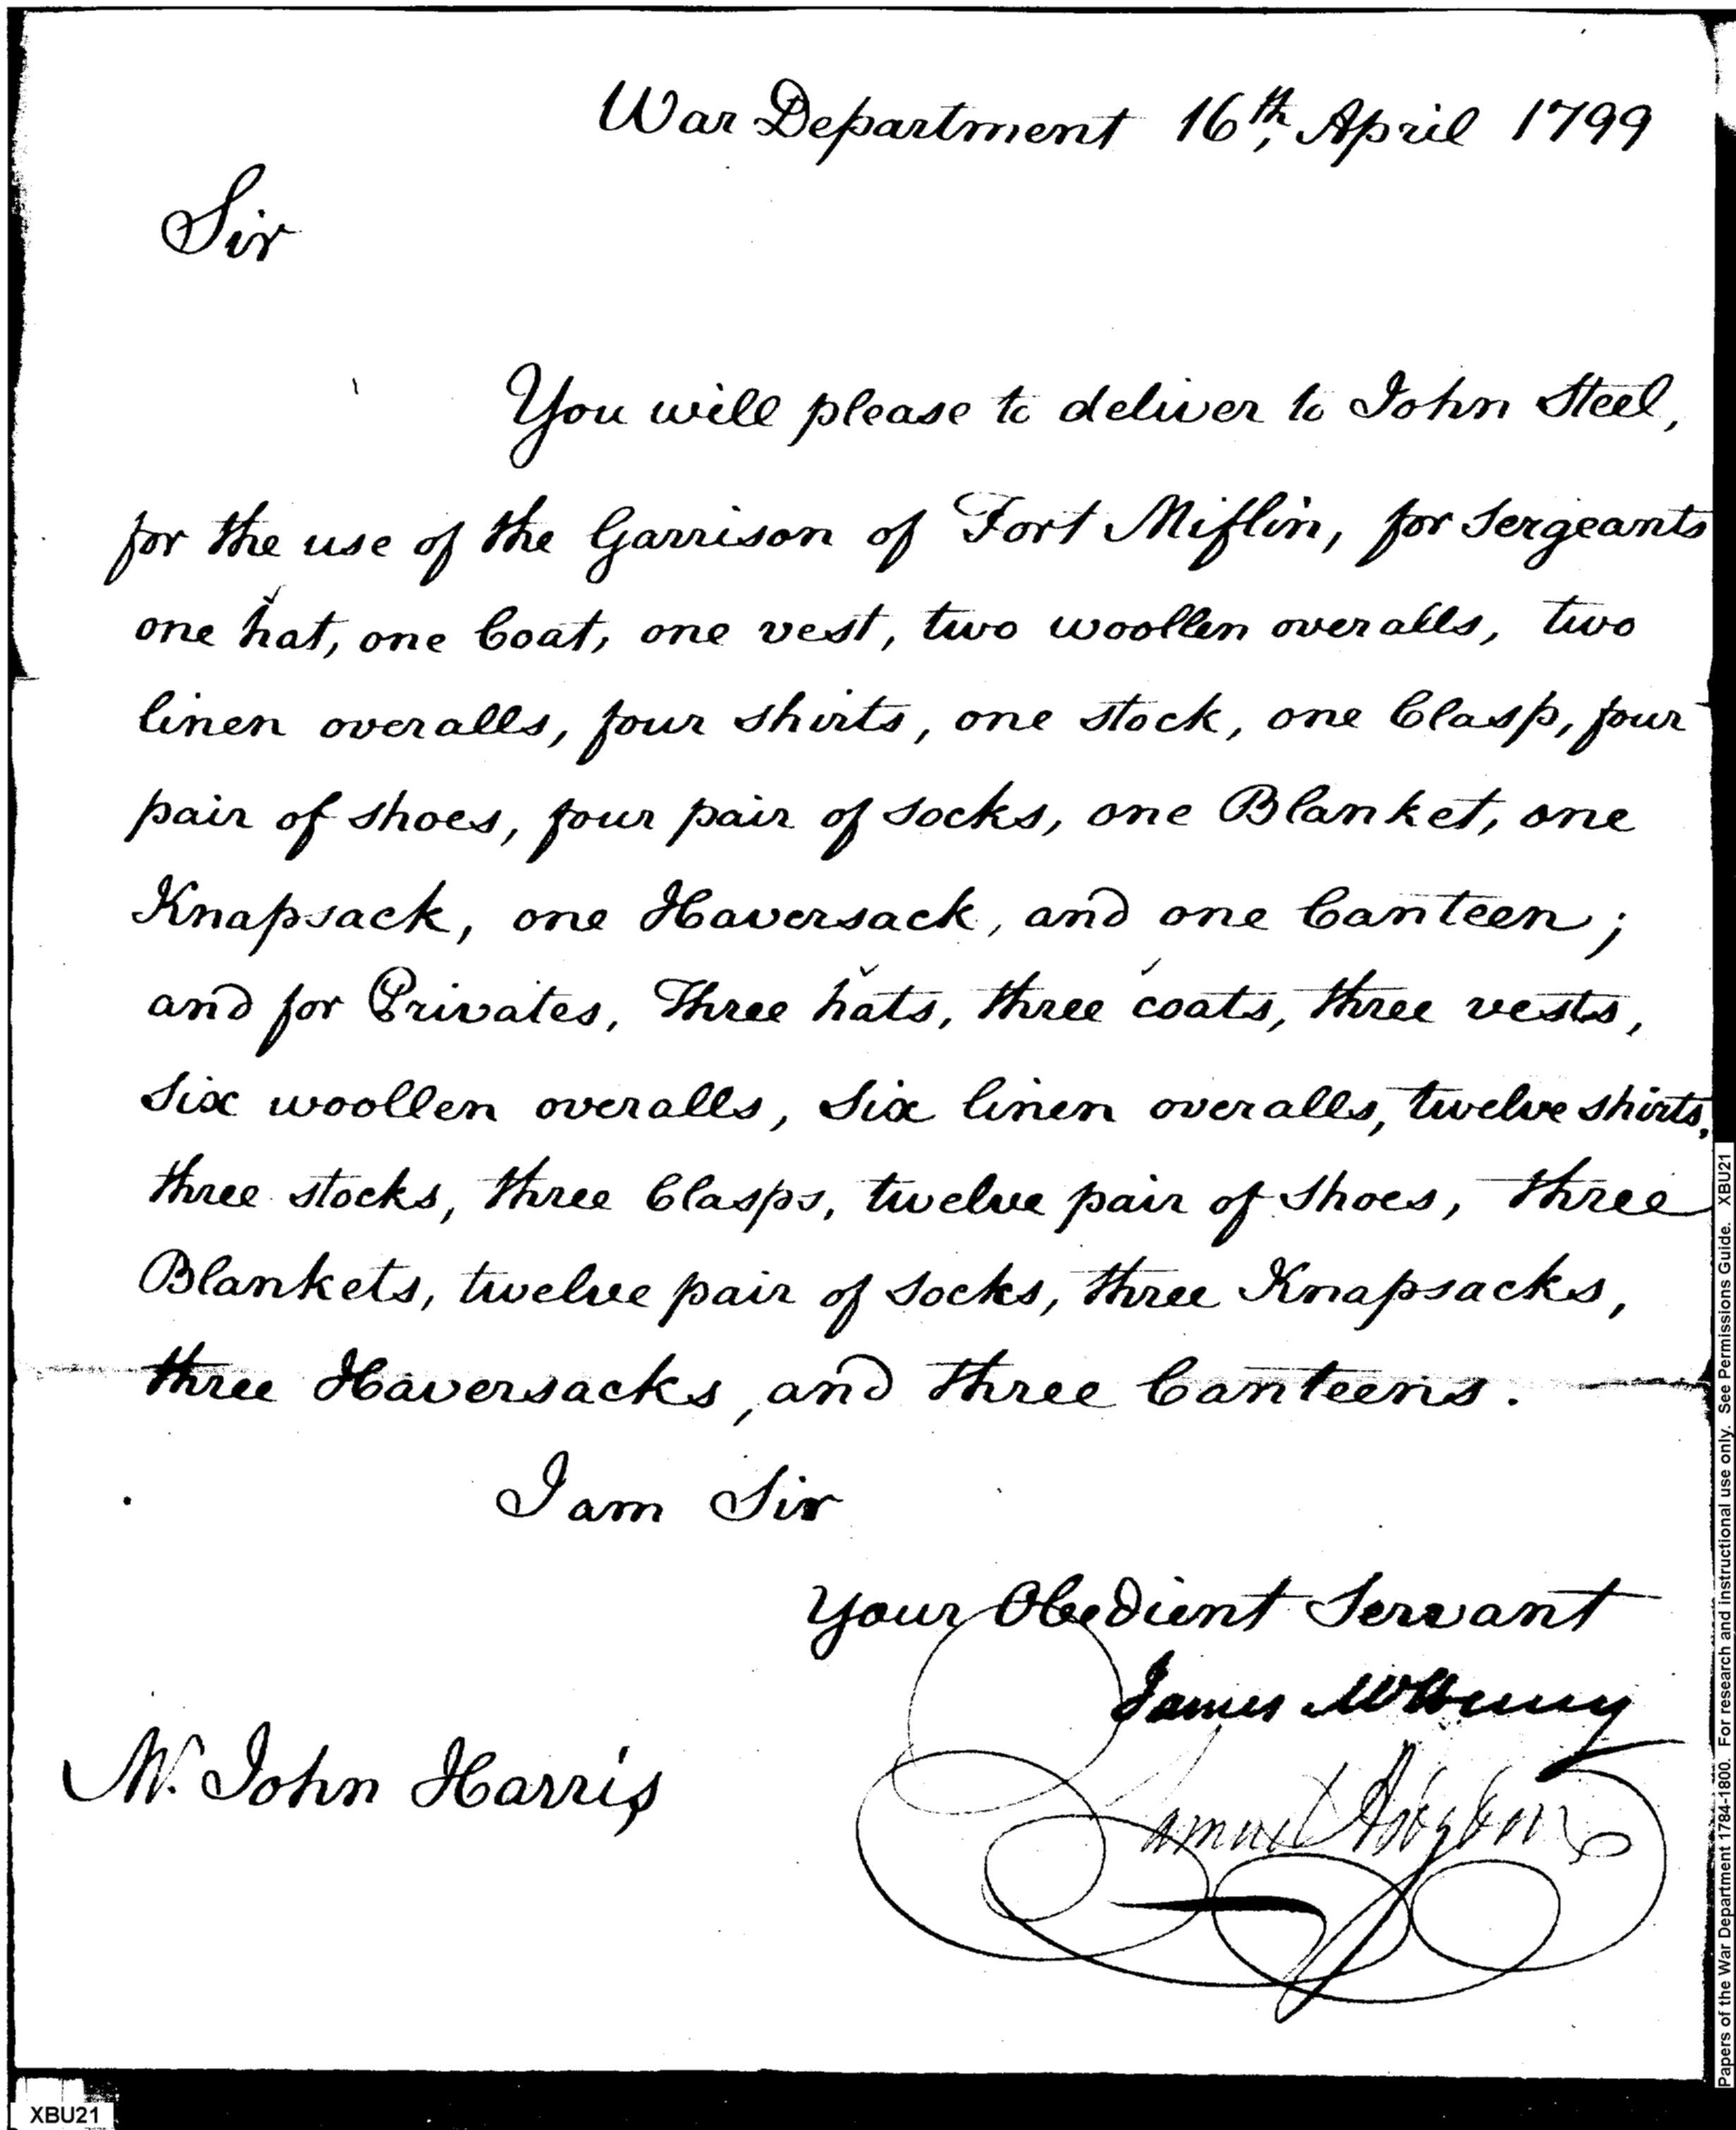 War Department 16th, April 1799
Sir
You will please to deliver to John Steel,
for the use of the Garrison of Fort Miflin, for Sergeants
one hat, one Coat, one vest, two woollen overalls, two
linen overalls, four shirts, one stock, one Clasp, four
pair of shoes, four pair of socks, one Blanket, one
Knapsack, one Haversack, and one Canteen;
and for Privates, Three hats, three coats, three vests,
Six woollen overalls, Six linen overalls, twelve shirts,
three stocks, three Clasps, twelve pair of shoes, three
Blankets, twelve pair of socks, three Knapsacks,
three Haversacks, and three Canteens.
I am Sir
Your Obedient Servant
James McHenry
Samuel Hodgdon
Mr. John Harris
XBU21
Papers of the War Department 1784-1800. For research and instructional use only. See Permissions Guide. XBU21